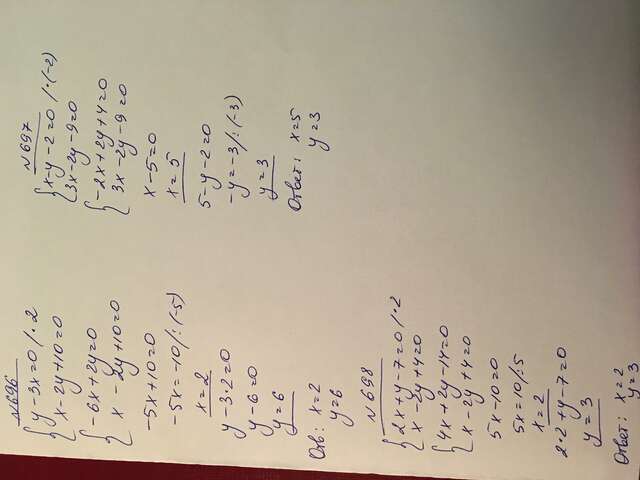 №696
{ y - 3x = 0 /·2
x - 2y + 10 = 0
{ -6x + 2y = 0
x - 2y + 10 = 0
-5x + 10 = 0
-5x = -10 /:(-5)
x = 2
y - 3·2 = 0
y - 6 = 0
y = 6
Отв: x = 2
y = 6
№698
{ 2x + y - 7 = 0 /·2
x - 2y + 4 = 0
{ 4x + 2y - 14 = 0
x - 2y + 4 = 0
5x - 10 = 0
5x = 10 /:5
x = 2
2·2 + y - 7 = 0
y = 3
Ответ: x = 2
y = 3
№697
{ x - y - 2 = 0 /·(-2)
3x - 2y - 9 = 0
{ -2x + 2y + 4 = 0
3x - 2y - 9 = 0
x - 5 = 0
x = 5
5 - y - 2 = 0
-y = -3 /:(-3)
y = 3
Ответ: x = 5
y = 3